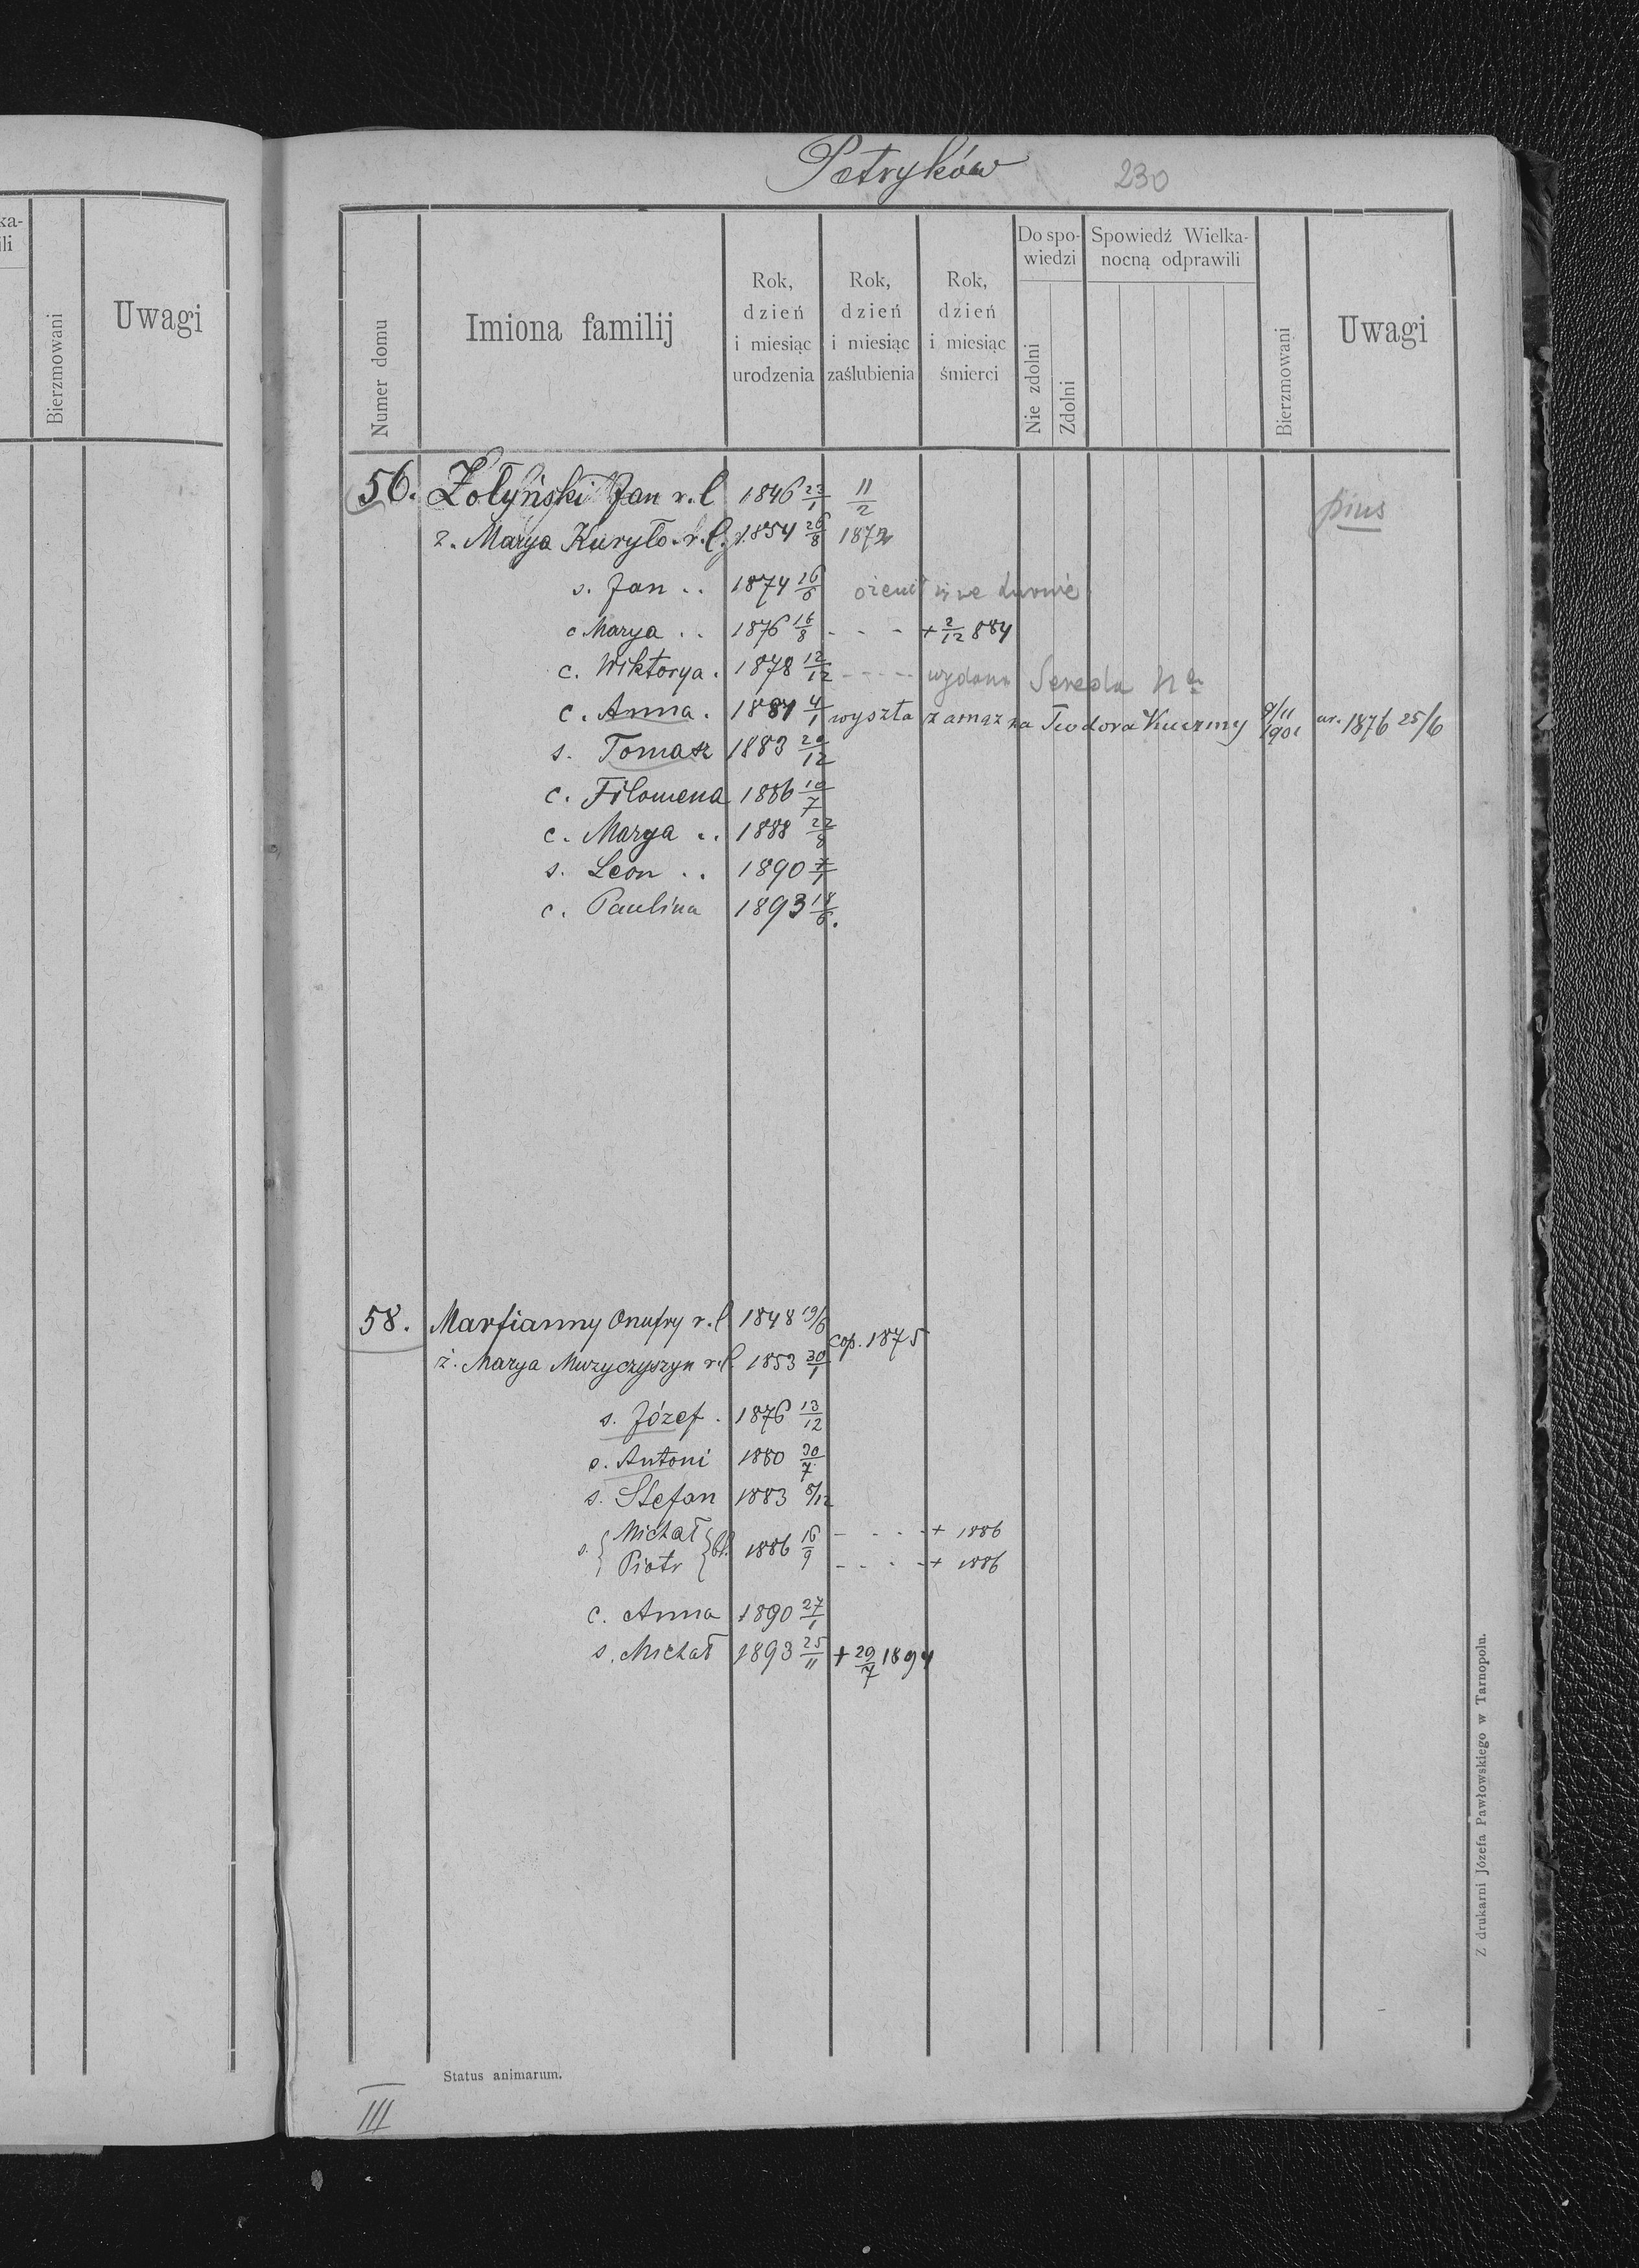 Petryków 230
ka-
ili
Bierzmowani
Uwagi
Numer domu
Imiona familij
Rok,
dzień
i miesiąc
urodzenia
Rok,
dzień
i miesiąc
zaślubienia
Rok,
dzień
i miesiąc
śmierci
Do spo-
wiedzi
Nie zdolni
Zdolni
Spowiedź Wielka-
nocną odprawili
Bierzmowani
Uwagi
56. Żołyński Jan r. l 1846 23/1 11/2 pius
ż. Marya Kuryło r. l. 1854 26/8 1872
s. Jan .. 1874 16/6 ożenił się we Lwowie
c Marya .. 1876 16/8 - - - + 2/12 884
c. Wiktorya . 1878 12/12 - - - - - wydana Sereda Na
c. Anna . 1881 4/1 wyszła zamąż za Teodora Kuczmy 9/11 1901 ur. 1876 25/6
s. Tomasz 1883 20/12
c. Filomena 1886 10/7
c. Marya .. 1888 22/8
s. Leon .. 1890 7/1
c. Paulina 1893 18/6.
58. Marfianny Onufry r. l 1848 19/6
cop. 1875
ż. Marya Muzyczyszyn r. l. 1853 30/1
s. Józef . 1876 13/12
s. Antoni 1880 30/7
s. Stefan 1883 8/12
s. { Michał } bl. 1886 16/9 - - - - + 1886
Piotr - - - - + 1886
c. Anna 1890 27/1
s. Michał 1893 25/11 + 29/7 1894
Status animarum.
III
Z drukarni Józefa Pawłowskiego w Tarnopolu.